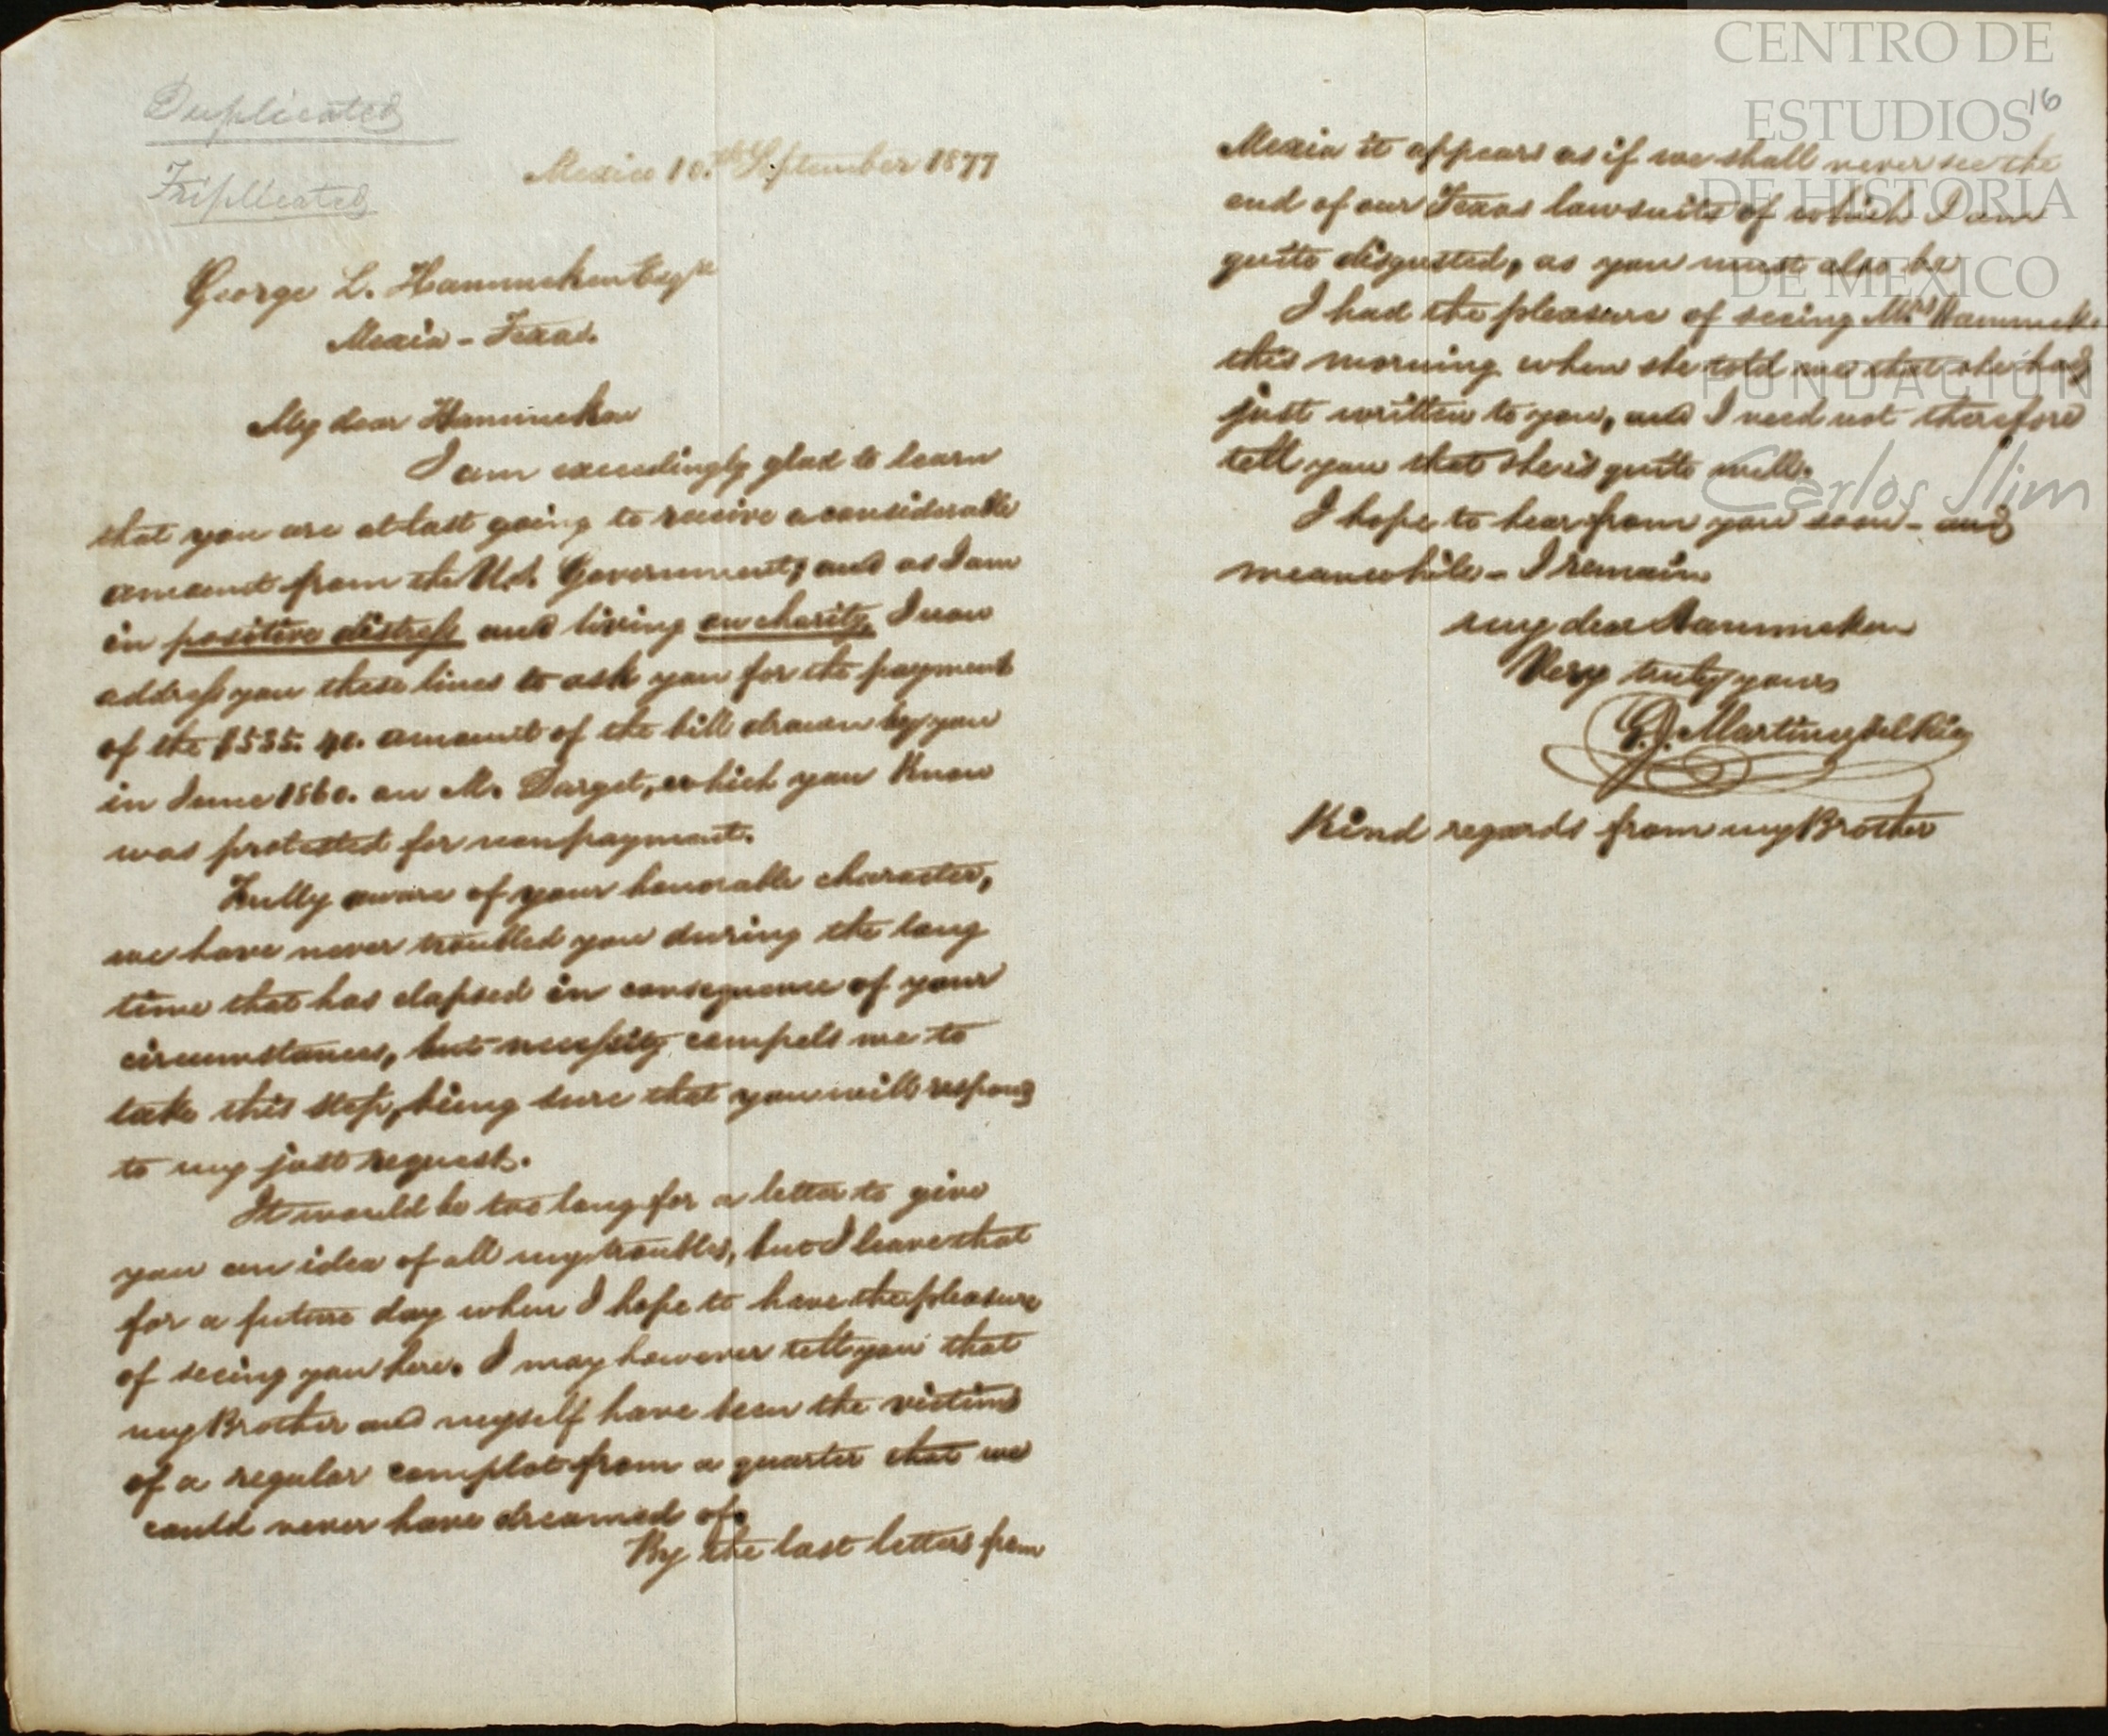 Duplicated
Triplicated
Mexico 10.th September 1877
George L. Hammeken Esqre
Mexia - Texas.
My dear Hammeken
I am exceedingly glad to learn
that you are at last going to receive a considerable
amount from the U.S. Government; and as I am
in positive distress and living on charity, I now
address you these lines to ask you for the payment
of the $535. 40. amount of the bill drawn by you
in June 1860. on M. Darget, which you Know
was protested for non payment.
Fully aware of your honorable character,
we have never troubled you during the long
time that has elapsed in consequence of your
circumstances, but necessity compels me to
take this step, being sure that you will respond
to my just request.
It would be too long for a letter to give
you an idea of all my troubles, but I leave that
for a future day when I hope to have the pleasure
of seeing you here. I may however tell you that
my Brother and myself have been the victims
of a regular complot from a quarter that we
could never have dreamed of.
By the last letters from
16
Mexia it appears as if we shall never see the
end of our Texas lawsuits of which I am
quite disgusted, as you must also be
I had the pleasure of seeing Mrs Hammeke
this morning when she told me that she had
just written to you, and I need not therefore
tell you that she is quite well.
I hope to hear from you soon - and
meanwhile - I remain
my dear Hammeken
Very truly yours
Martinez del Rio
Kind regards from my Brother
CENTRO DE
ESTUDIOS
DE HISTORIA
DE MEXICO
FUNDACION
Carlos Slim